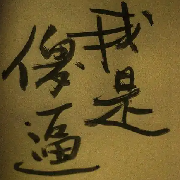 我是
傻逼